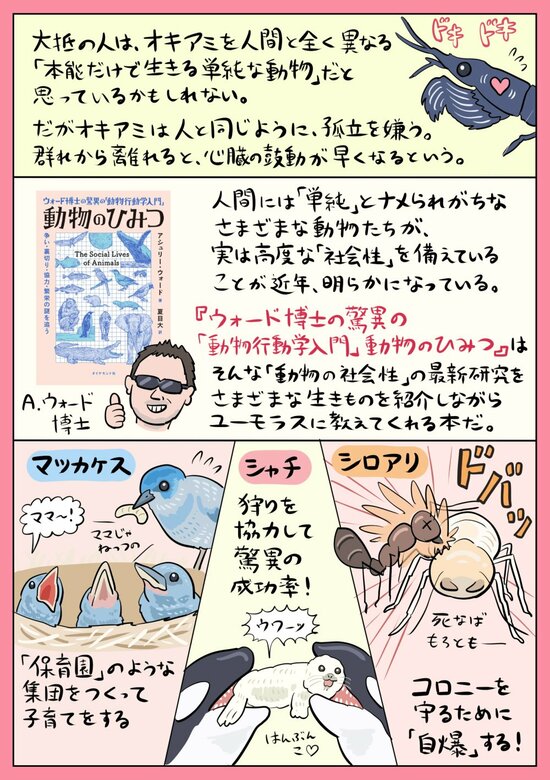 ドキ ドキ
大抵の人は、オキアミを人間と全く異なる
「本能だけで生きる単純な動物」だと
思っているかもしれない。
だがオキアミは人と同じように、孤立を嫌う。
群れから離れると、心臓の鼓動が早くなるという。
ウォード博士の驚異の「動物行動学入門」
動物のひみつ
争い・裏切り・協力・繁栄の謎を追う
The Social Lives
of Animals
アシュリー・ウォード 著
夏目大 訳
ダイヤモンド社
A.ウォード
博士
人間には「単純」とナメられがちな
さまざまな動物たちが、
実は高度な「社会性」を備えている
ことが近年、明らかになっている。
『ウォード博士の驚異の
「動物行動学入門」動物のひみつ』は
そんな「動物の社会性」の最新研究を
さまざまな生きものを紹介しながら
ユーモラスに教えてくれる本だ。
マツカケス
ママ〜!
ママじゃ
ねっつの
「保育園」のような
集団をつくって
子育てをする
シャチ
狩りを
協力して
驚異の
成功率!
ウワーッ
はんぶん
こ♡
シロアリ
ドバッ
死なば
もろとも―
コロニーを
守るために
「自爆」する!